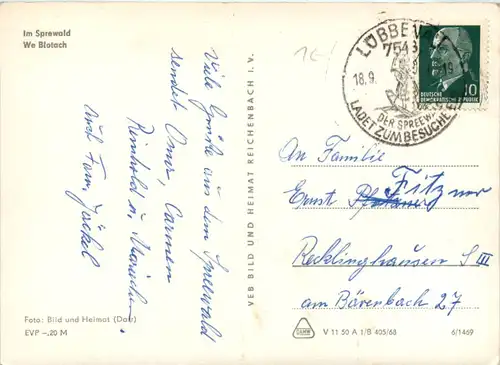 Im Sprewald
We Blotach
Viele Grüße aus dem Spreewald
sendet Oma, Carmen
Reinhold u.
auch Fam. Jäckel
Foto: Bild und Heimat (Dore)
EVP –,20 M
VEB BILD UND HEIMAT REICHENBACH I. V.
LÜBBENAU
7543
18.9.
DER SPREEWALD
LADET ZUM BESUCHE EIN
10
DEUTSCHE
DEMOKRATISCHE REPUBLIK
An Familie
Ernst Fitzner
Recklinghausen S III
am Bärenbach 27
V 11 50 A 1/B 405/68
6/1469